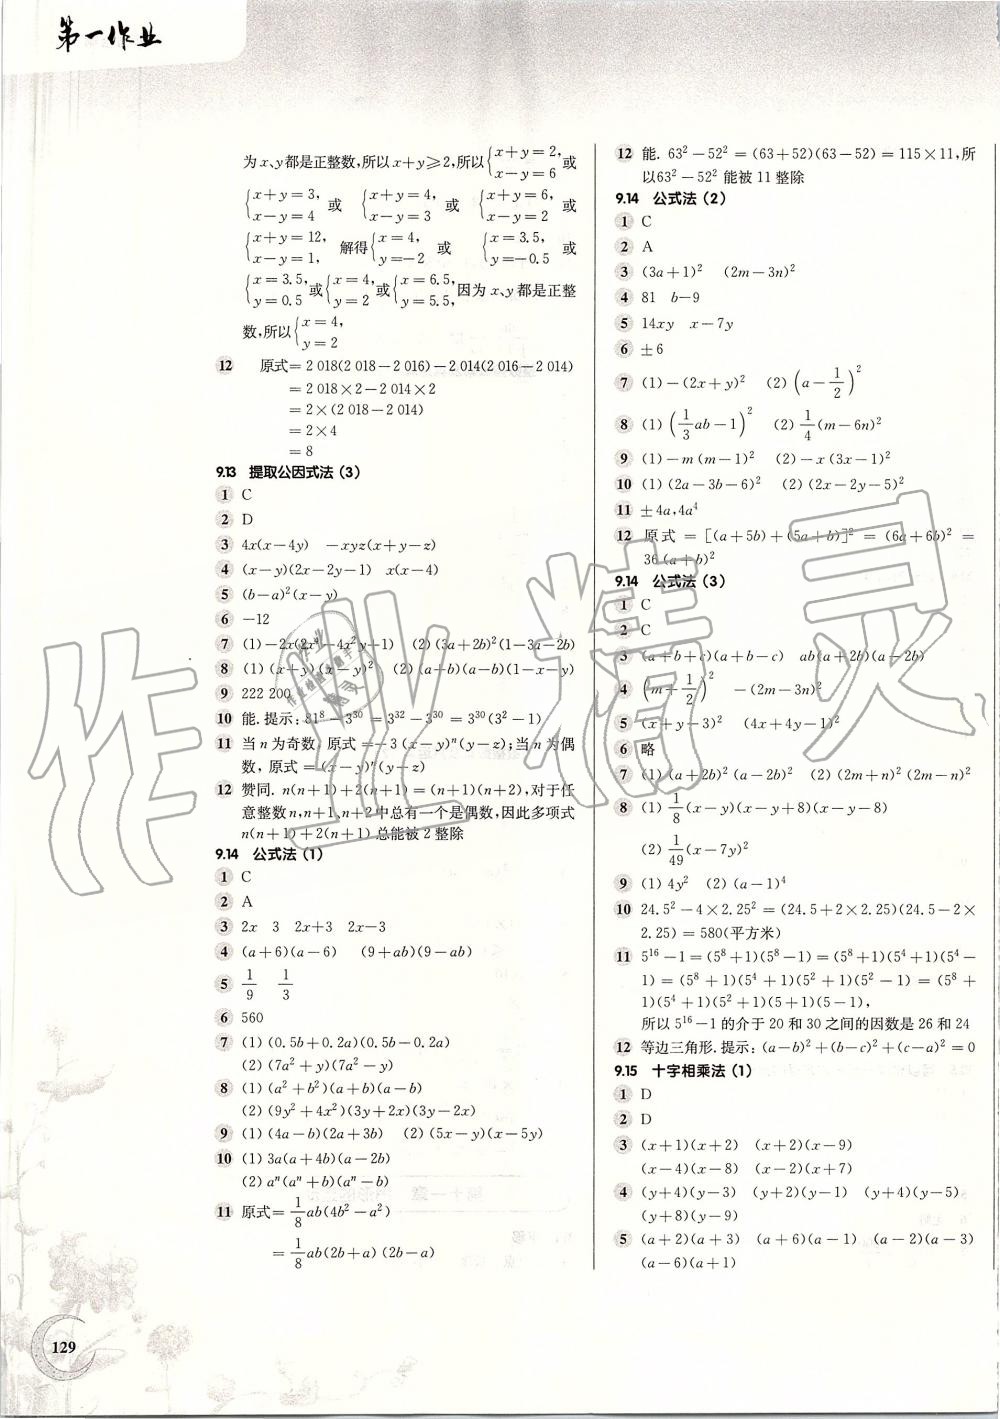 第一作业
为x、y都是正整数,所以x+y≥2,所以{x+y=2, x-y=6 或
{x+y=3, x-y=4 或 {x+y=4, x-y=3 或 {x+y=6, x-y=2 或
{x+y=12, x-y=1, 解得{x=4, y=-2 或 {x=3.5, y=-0.5 或
{x=3.5, y=0.5 或{x=4, y=2 或{x=6.5, y=5.5, 因为x、y都是正整
数,所以{x=4, y=2
12 原式=2 018(2 018-2 016)-2 014(2 016-2 014)
=2 018×2-2 014×2
=2×(2 018-2 014)
=2×4
=8
9.13 提取公因式法(3)
1 C
2 D
3 4x(x-4y) -xyz(x+y-z)
4 (x-y)(2x-2y-1) x(x-4)
5 (b-a)²(x-y)
6 -12
7 (1)-2x(2x⁴-4x²y+1) (2)(3a+2b)²(1-3a-2b)
8 (1)(x-y)(x-y)² (2)(a+b)(a-b)(1-x-y)
9 222 200
10 能.提示:81⁸-3³⁰=3³²-3³⁰=3³⁰(3²-1)
11 当n为奇数,原式=-3(x-y)ⁿ(y-z);当n为偶
数,原式=(x-y)ⁿ(y-z)
12 赞同. n(n+1)+2(n+1)=(n+1)(n+2),对于任
意整数n,n+1,n+2中总有一个是偶数,因此多项式
n(n+1)+2(n+1)总能被2整除
9.14 公式法(1)
1 C
2 A
3 2x 3 2x+3 2x-3
4 (a+6)(a-6) (9+ab)(9-ab)
5 1/9 1/3
6 560
7 (1)(0.5b+0.2a)(0.5b-0.2a)
(2)(7a²+y)(7a²-y)
8 (1)(a²+b²)(a+b)(a-b)
(2)(9y²+4x²)(3y+2x)(3y-2x)
9 (1)(4a-b)(2a+3b) (2)(5x-y)(x-5y)
10 (1)3a(a+4b)(a-2b)
(2)aⁿ(aⁿ+b)(aⁿ-b)
11 原式=1/8ab(4b²-a²)
=1/8ab(2b+a)(2b-a)
12 能. 63²-52²=(63+52)(63-52)=115×11,所
以63²-52²能被11整除
9.14 公式法(2)
1 C
2 A
3 (3a+1)² (2m-3n)²
4 81 b-9
5 14xy x-7y
6 ±6
7 (1)-(2x+y)² (2)(a-1/2)²
8 (1)(1/3ab-1)² (2)1/4(m-6n)²
9 (1)-m(m-1)² (2)-x(3x-1)²
10 (1)(2a-3b-6)² (2)(2x-2y-5)²
11 ±4a,4a⁴
12 原式=[(a+5b)+(5a+b)]²=(6a+6b)²=
36(a+b)²
9.14 公式法(3)
1 C
2 C
3 (a+b+c)(a+b-c) ab(a+2b)(a-2b)
4 (m-1/2)² -(2m-3n)²
5 (x+y-3)² (4x+4y-1)²
6 略
7 (1)(a+2b)²(a-2b)² (2)(2m+n)²(2m-n)²
8 (1)1/8(x-y)(x-y+8)(x-y-8)
(2)1/49(x-7y)²
9 (1)4y² (2)(a-1)⁴
10 24.5²-4×2.25²=(24.5+2×2.25)(24.5-2×
2.25)=580(平方米)
11 5¹⁶-1=(5⁸+1)(5⁸-1)=(5⁸+1)(5⁴+1)(5⁴-
1)=(5⁸+1)(5⁴+1)(5²+1)(5²-1)=(5⁸+
1)(5⁴+1)(5²+1)(5+1)(5-1),
所以5¹⁶-1的介于20和30之间的因数是26和24
12 等边三角形.提示:(a-b)²+(b-c)²+(c-a)²=0
9.15 十字相乘法(1)
1 D
2 D
3 (x+1)(x+2) (x+2)(x-9)
(x-4)(x-8) (x-2)(x+7)
4 (y+4)(y-3) (y+2)(y-1) (y+4)(y-5)
(y+8)(y-9)
5 (a+2)(a+3) (a+6)(a-1) (a-2)(a-3)
(a-6)(a+1)
129
作业精灵